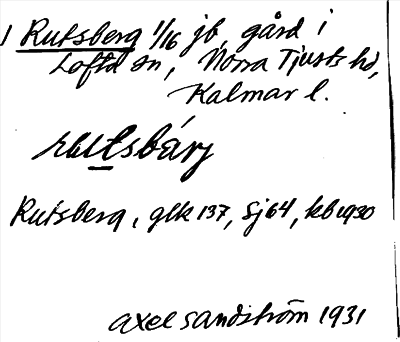 1 Rutsberg 1/16 jb, gård i
Lofta sn, Norra Tjusts hd,
Kalmar l.
rutsbárj
Rutsberg, glk 137, Sj64, kb 1930
Axel Sandström 1931